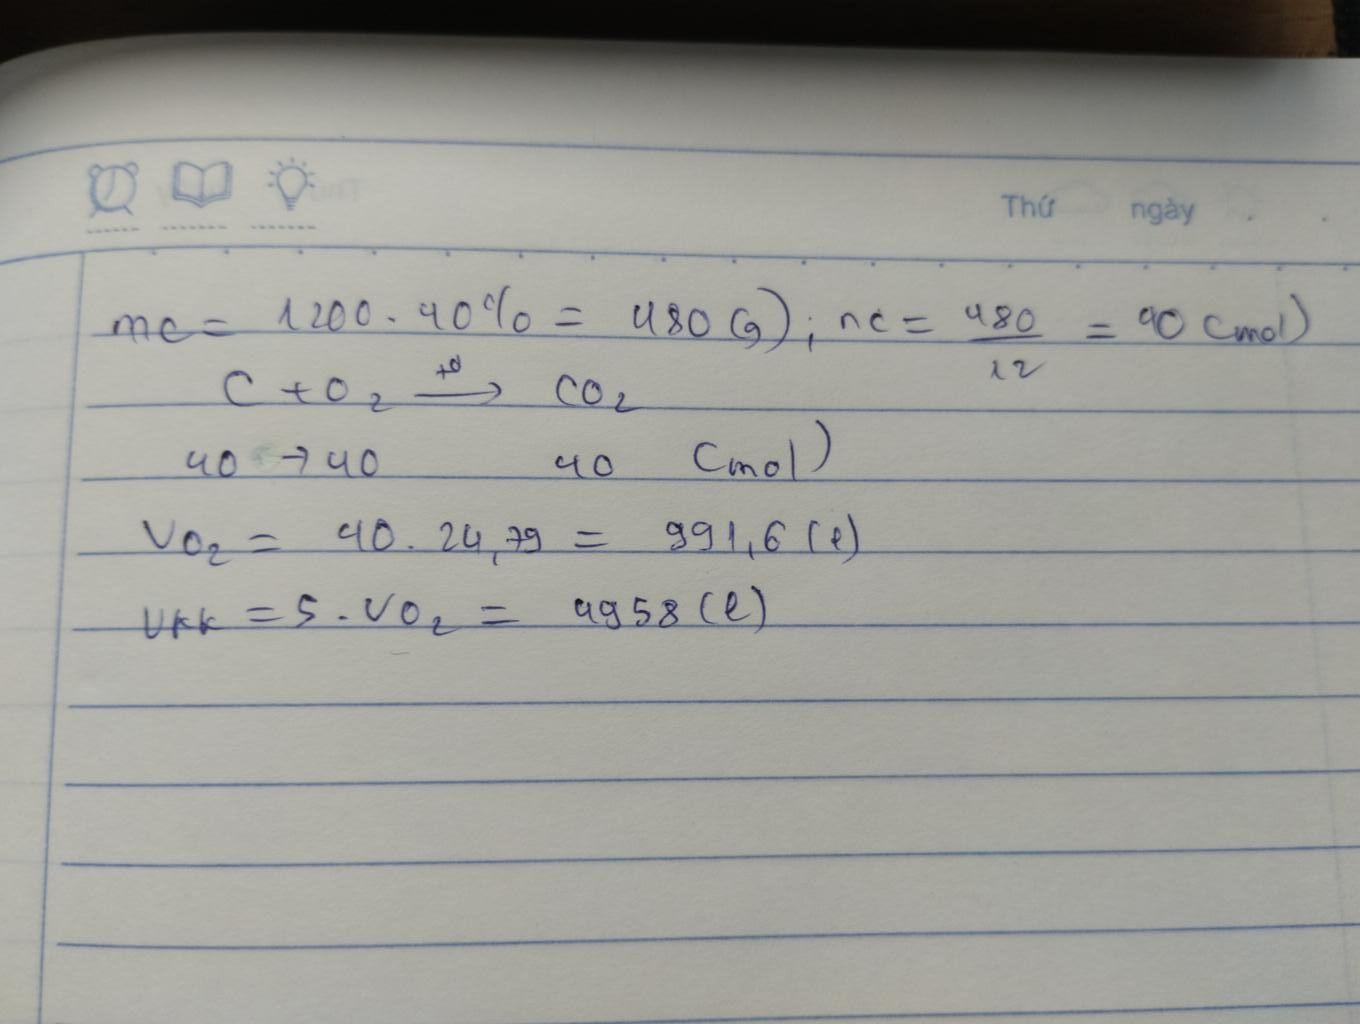 Thứ ngày . .
mc = 1200 . 40% = 480 (g) ; nc = 480/12 = 40 (mol)
C + O₂ —t⁰→ CO₂
40 → 40 40 (mol)
VO₂ = 40 . 24,79 = 991,6 (l)
Vkk = 5 . VO₂ = 4958 (l)